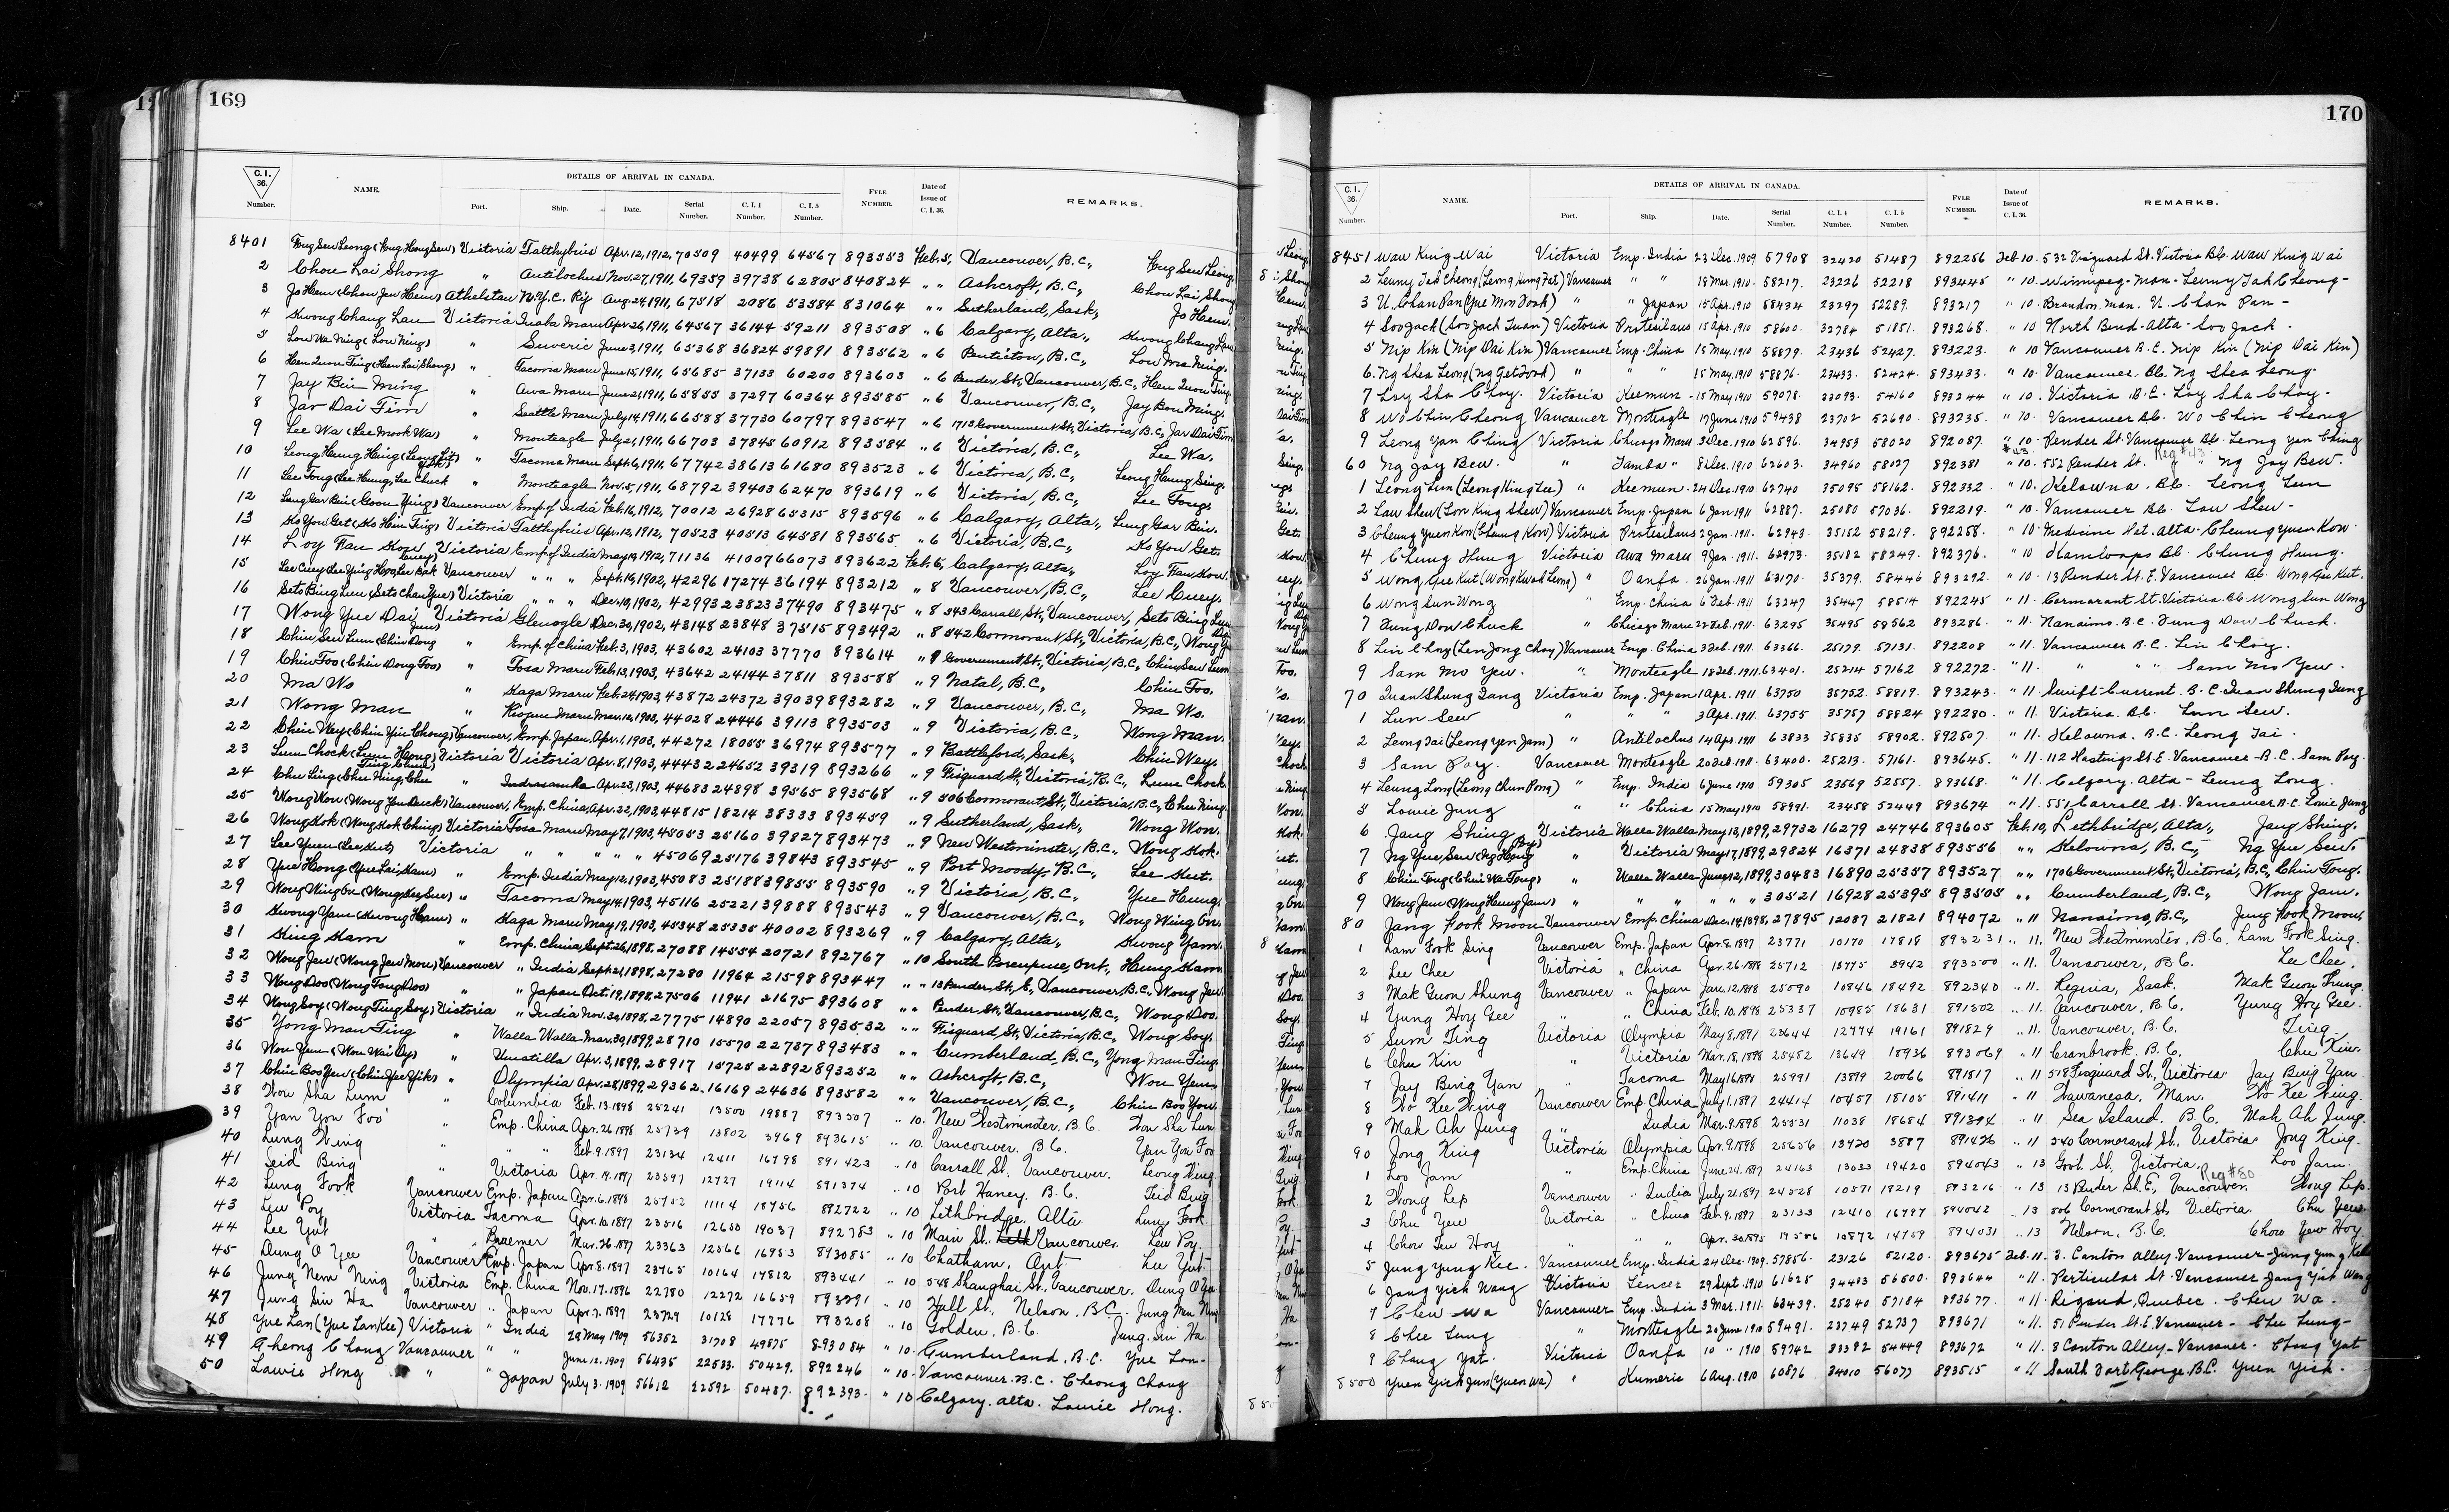 169
C. I. 36. Number.
NAME.
DETAILS OF ARRIVAL IN CANADA.
Port. Ship. Date. Serial Number. C. I. 4 Number. C. I. 5 Number.
FYLE NUMBER.
Date of Issue of C. I. 36.
REMARKS.
8401 Victoria Talthybius Apr. 12, 1912, 70509 40499 64567 893553 Feb. 5, Vancouver, B.C.,
2 Chou Lai Shong " Antilochus Nov. 27, 1911, 69359 39738 62805 840824 " " Ashcroft, B.C., Chou Lai Shong
3 Jo Hem (Chow Jew Hem) Athelstan N.Y.C. Rly Aug. 24, 1911, 67518 2086 53584 831064 " " Sutherland, Sask., Jo Hem.
4 Kwong Chang Lau Victoria Inaba Maru Apr. 26, 1911, 64567 36144 59211 893508 " 6 Calgary, Alta., Kwong Chang Lau
5 Low Wa Ning (Low Ning) " Suveric June 3, 1911, 65368 36824 59891 893562 " 6 Penticton, B.C.,
6 " Tacoma Maru June 15, 1911, 65685 37133 60200 893603 " 6 Pender St., Vancouver, B.C.,
7 Jay Bin Ming " Awa Maru June 21, 1911, 65855 37297 60364 893585 " 6 Vancouver, B.C.,
8 Jar Dai Tim " Seattle Maru July 14, 1911, 66588 37730 60797 893547 " 6 1713 Government St., Victoria, B.C., Jar Dai Tim
9 Lee Wa (Lee Mook Wa) " Monteagle July 21, 1911, 66703 37845 60912 893584 " 6 Victoria, B.C., Lee Wa.
10 " Tacoma Maru Sept. 6, 1911, 67742 38613 61680 893523 " 6 Victoria, B.C.,
11 Lee Tong (Lee Hung, Lee Chuck " Monteagle Nov. 5, 1911, 68792 39403 62470 893619 " 6 Victoria, B.C., Lee Tong.
12 Lung Gar Bin (Goon Ying) Vancouver Emp. of India Feb. 16, 1912, 70012 26928 65315 893596 " 6 Calgary, Alta., Lung Gar Bin.
13 Ko You Get (Ko Hin Ting) Victoria Talthybius Apr. 12, 1912, 70523 40513 64581 893565 " 6 Victoria, B.C., Ko You Get.
14 Loy Fan Kow Victoria Emp. of India May 19, 1912, 71136 41007 66073 893622 Feb. 6, Calgary, Alta., Loy Fan Kow.
15 Vancouver " " " Sept. 16, 1902, 42296 17274 36194 893212 " 8 Vancouver, B.C.,
16 Victoria " " " Dec. 10, 1902, 42993 23823 37490 893475 " 8 343 Carrall St., Vancouver,
17 Wong Yue Dai Victoria Glenogle Dec. 30, 1902, 43148 23848 37515 893492 " 8 542 Cormorant St., Victoria, B.C.,
18 " Emp. of China Feb. 3, 1903, 43602 24103 37770 893614 " 9 Government St., Victoria, B.C., Chin Sew Lum
19 Chin Foo (Chin Dong Foo) " Tosa Maru Feb. 13, 1903, 43642 24144 37811 893588 " 9 Natal, B.C., Chin Foo.
20 Ma Wo " Kaga Maru Feb. 24, 1903, 43872 24372 39039 893282 " 9 Vancouver, B.C., Ma Wo.
21 Wong Man " Riojun Maru Mar. 12, 1903, 44028 24446 39113 893503 " 9 Victoria, B.C., Wong Man.
22 Chin Wey (Chin Yin Chong) Vancouver, Emp. Japan, Apr. 1, 1903, 44272 18055 36974 893577 " 9 Battleford, Sask., Chin Wey.
23 Lum Chock Victoria Victoria Apr. 8, 1903, 44432 24652 39319 893266 " 9 Fisguard St., Victoria, B.C., Lum Chock
24 " Indrasamha Apr. 23, 1903, 44683 24898 39565 893568 " 9 506 Cormorant St., Victoria, B.C.,
25 Vancouver, Emp. China, Apr. 22, 1903, 44815 18214 38333 893459 " 9 Sutherland, Sask., Wong Won.
26 Wong Kok (Wong Kok Ching) Victoria Tosa Maru May 7, 1903, 45053 25160 39827 893473 " 9 New Westminster, B.C., Wong Kok.
27 Victoria " " " " " 45069 25176 39843 893545 " 9 Port Moody, B.C.,
28 " Emp. India May 12, 1903, 45083 25188 39855 893590 " 9 Victoria, B.C., Yue Hung.
29 " Tacoma May 14, 1903, 45116 25221 39888 893543 " 9 Vancouver, B.C., Wong Wing On.
30 Kwong Yam (Kwong Ham) " Kaga Maru May 19, 1903, 45348 25335 40002 893269 " 9 Calgary, Alta., Kwong Yam.
31 " Emp. China, Sept. 26, 1898, 27088 14554 20721 892767 " 10 South Porcupine, Ont.,
32 Wong Jew (Wong Jew Mon) Vancouver " India Sept. 21, 1898, 27280 11964 21598 893447 " " 13 Pender St., E., Vancouver, B.C., Wong Jew.
33 Wong Doo (Wong Tong Doo) " " Japan Oct. 19, 1898, 27506 11941 21675 893608 " " Pender St., Vancouver, B.C., Wong Doo.
34 Wong Soy (Wong Ting Soy) Victoria " India Nov. 30, 1898, 27775 14890 22057 893532 " " Fisguard St., Victoria, B.C., Wong Soy.
35 Yong Man Ting " Walla Walla Mar. 30, 1899, 28710 15570 22737 893483 " " Cumberland, B.C., Yong Man Ting.
36 Wou Yem " Umatilla Apr. 3, 1899, 28917 15725 22892 893252 " " Ashcroft, B.C., Wou Yem
37 " Olympia Apr. 28, 1899, 29362 16169 24636 893582 " " Vancouver, B.C., Chin Boo You
38 Wou Sha Lum " Columbia Feb. 13. 1898 25241 13500 19887 893507 .. 10. New Westminster, B.C. Won Sha Lum
39 Yan You Foo " Emp. China Apr. 26 1898 25739 13802 3969 893615 .. 10. Vancouver. B.C. Yan You Foo
40 Lung Wing " " Feb. 9. 1897 23134 12411 16798 891423 .. 10 Carrall St. Vancouver. Leong Wing
41 Seid Bing " Victoria Apr. 19. 1897 23597 12727 19114 891374 .. 10 Port Haney. B.C. Seid Bing
42 Lung Fook Vancouver Emp. Japan Apr. 6. 1898 25752 11114 18756 892722 .. 10 Lethbridge. Alta Lung Fook
43 Lew Poy Victoria Tacoma Apr. 10. 1897 23516 12650 19037 892783 .. 10 Main St. Vancouver. Lew Poy
44 Lee Yut " Braemer Mar. 26. 1897 23363 12566 16953 893085 .. 10 Chatham, Ont. Lee Yut
45 Dung O Yee Vancouver Emp. Japan Apr. 8. 1897 23765 10164 17812 893441 .. 10 548 Shanghai St. Vancouver.
46 Jung Nem Ning Victoria Emp. China Nov. 17. 1896 22780 12272 16659 893291 .. 10 Hall St. Nelson. B.C.
47 Jung Sin Ha Vancouver " Japan Apr. 7. 1897 23729 10128 17776 893208 .. 10 Golden, B.C. Jung Sin Ha
48 Yue Lan (Yue Lan Kee) Victoria " India 29 May 1909 56352 31708 49875 893084 " 10. Cumberland, B.C. Yue Lan-
49 Cheong Chong Vancouver " " June 12. 1909 56435 22533. 50429. 892246 " 10. Vancouver. B.C. Cheong Chong
50 Lawie Hong " " Japan July 3. 1909 56612 22592 50487. 892393. " 10 Calgary. Alta. Lawie Hong.
170
C. I. 36. Number.
NAME.
DETAILS OF ARRIVAL IN CANADA.
Port. Ship. Date. Serial Number. C. I. 4 Number. C. I. 5 Number.
FYLE NUMBER.
Date of Issue of C. I. 36.
REMARKS.
8451 Waw King Wai Victoria Emp. India 23 Dec. 1909 57908 32420 51487 892256 Feb. 10. 532 Fisguard St. Victoria B.C. Waw King Wai
2 Leung Tak Cheong Vancouver " " 18 Mar. 1910. 58217. 23226 52218 893445 " 10. Winnipeg. Man- Leung Tak Cheong-
3 U. Chan Pan " " Japan 15 Apr. 1910 58434 23297 52289. 893217 " 10. Brandon, Man. U. Chan Pan-
4 Soo Jack (Soo Jack Tuan) Victoria Protesilaus 15 Apr. 1910 58600. 32784 51851. 893268. " 10 North Bend-Alta- Soo Jack.
5 Nip Kin (Nip Dai Kin) Vancouver Emp. China 15 May. 1910 58879. 23436 52427. 893223. " 10 Vancouver B.C. Nip Kin (Nip Dai Kin)
6. Ng Shea Leong " " " 15 May. 1910 58876. 23433. 52424. 893433. " 10. Vancouver. B.C. Ng Shea Leong.
7 Loy Sha Choy. Victoria Keemun - 15 May 1910 59078. 33093. 54160 893244 " 10. Victoria. B.C. Loy Sha Choy.
8 Wo Chin Cheong Vancouver Monteagle 19 June 1910 59438 23702 52690. 893235. " 10. Vancouver B.C. Wo Chin Cheong
9 Leong Yan Ching Victoria Chicago Maru 3 Dec. 1910 62596. 34953 58020 892087. " 10. Pender St. Vancouver B.C. Leong Yan Ching
60 Ng Jay Bew. " Tamba " 8 Dec. 1910 62603. 34960 58027 892381 " 10. 552 Pender St. " " Ng Jay Bew.
Reg #43
1 Leong Lun (Leong King Lee) " Keemun - 24 Dec. 1910 62740 35095 58162. 892332 " 10. Kelowna. B.C. Leong Lun
2 Law Shew (Low King Shew) Vancouver Emp. Japan 6 Jan 1911 62887. 25080 57036. 892219. " 10. Vancouver B.C. Law Shew-
3 Cheung Yuen Kon (Cheung Kow) Victoria Protesilaus 2 Jan. 1911. 62943. 35152 58219. 892258. " 10. Medicine Hat. Alta. Cheung Yuen Kow.
4 Chung Hung Victoria Awa Maru 9 Jan. 1911. 62973. 35182 58249. 892376. " 10 Kamloops B.C. Chung Hung.
5 Wong Gue Kut (Wong Kwok Leong) " Oanfa. 26 Jan. 1911 63170. 35379. 58446 893292. " 10. 13 Pender St. E. Vancouver B.C. Wong Gue Kut.
6 Wong Sun Wong " Emp. China 6 Feb. 1911 63247 35447 58514 892245 " 11. Cormorant St. Victoria. B.C. Wong Sun Wong
7 Fung Dow Chuck " Chicago Maru 22 Feb. 1911. 63295 35495 58562 893286. " 11. Nanaimo. B.C. Fung Dow Chuck.
8 Lin Choy (Len Jong Choy) Vancouver Emp. China 3 Feb. 1911. 63366. 25179. 57131. 892208 " 11. Vancouver B.C. Lin Choy.
9 Sam Mo Yew. " Monteagle 18 Feb. 1911. 63401. 25214 57162 892272. " 11. " " " Sam Mo Yew.
70 Quan Shung Dang Victoria Emp. Japan 1 Apr. 1911 63750 35752. 58819. 893243. " 11. Swift Current. B.C.
1 Lun Sew " " " 3 Apr. 1911. 63755 35757 58824 892280. " 11. Victoria. B.C. Lun Sew.
2 Leong Tai (Leong Yen Jam) " Antilochus 14 Apr. 1911 63833 35835 58902. 892507. " 11. Kelowna. B.C. Leong Tai.
3 Sam Poy. Vancouver Monteagle 20 Feb. 1911. 63400. 25213. 57161. 893645. " 11. 112 Hastings St. E. Vancouver - B.C. Sam Poy.
4 Leung Long (Leong Chun Pong) " Emp. India 6 June 1910 59305 23569 52557. 893668. " 11. Calgary. Alta- Leung Long.
5 Lowie Jung " " China 15 May 1910 58991. 23458 52449 893674 " 11. 551 Carrall St. Vancouver B.C. Lowie Jung
6 Jang Shing Victoria Walla Walla May 13, 1899, 29732 16279 24746 893605 Feb. 10, Lethbridge, Alta., Jang Shing.
7 Ng Yue Sew " Victoria May 17, 1899, 29824 16371 24838 893556 " " Kelowna, B.C., Ng Yue Sew.
8 Chin Tong (Chin Wa Tong) " Walla Walla June 12, 1899, 30483 16890 25357 893527 " " 1706 Government St., Victoria, B.C., Chin Tong.
9 Wong Jam (Wong Hung Jam) " " " " " " 30521 16928 25395 893505 " " Cumberland, B.C., Wong Jam.
80 Jang Hook Moon Vancouver Emp. China Dec. 14, 1898, 27895 12087 21821 894072 " 11 Nanaimo, B.C., Jung Hook Moon
1 Lam Fook Sing Vancouver Emp. Japan Apr. 8. 1897 23771 10170 17818 893231 .. 11. New Westminster, B.C. Lam Fook Sing.
2 Lee Chee Victoria " China Apr. 26. 1898 25712 13775 3942 893500 " 11. Vancouver, B.C. Lee Chee.
3 Mak Guon Shung Vancouver " Japan Jan. 12. 1898 25090 10846 18492 892340 .. 11. Regina, Sask.
4 Yung Hoy Gee " " China Feb. 10. 1898 25337 10985 18631 891502 .. 11. Vancouver, B.C. Yung Hoy Gee.
5 Sum Ting Victoria Olympia May 8. 1897 23644 12774 19161 891829 .. 11. Vancouver, B.C. Ting.
6 Chu Kin " Victoria Mar. 18. 1898 25482 13649 18936 893069 " 11 Cranbrook. B.C. Chu Kin.
7 Jay Bing Yan " Tacoma May 16. 1898 25991 13899 20066 891817 .. 11 518 Fisguard St., Victoria Jay Bing Yan
8 Wo Kee Wing Vancouver Emp. China July 1. 1897 24414 10457 18105 891411 .. 11 Wawanesa, Man. Wo Kee Wing.
9 Mak Ah Jung " " India Mar. 9. 1898 25531 11038 18684 891394 .. 11 Sea Island, B.C. Mak Ah Jung.
90 Jong King Victoria Olympia Apr. 9. 1898 25656 13720 3887 891426 .. 11 540 Cormorant St., Victoria Jong King.
1 Loo Jam " Emp. China June 24. 1897 24163 13033 19420 894043 .. 13 Govt. St. Victoria. Loo Jam.
Reg #80
2 Wong Lep Vancouver " India July 21. 1897 24528 10571 18219 893216 .. 13 13 Pender St. E., Vancouver. Wong Lep.
3 Chu Yew Victoria " China Feb. 9. 1897 23133 12410 16797 894042 .. 13 506 Cormorant St., Victoria. Chu Yew.
4 " " " Apr. 30. 1895 19586 10872 14759 894031 .. 13 Nelson, B.C. Chow Yew Hoy
5 Jung Yung Kee. Vancouver Emp. India 24 Dec. 1909. 57856. 23126 52120. 893675 Feb. 11. 3. Canton Alley. Vancouver- Jung Yung Kee
6 Jang Yick Wong Victoria Teucer 29 Sept. 1910 61628 34413 56500. 893644 " 11.
7 Chew Wa Vancouver Emp. India 3 Mar. 1911. 63439. 25240 57184 893677. " 11. Rigaud, Quebec. Chew Wa.
8 Chee Lung " Monteagle 20 June 1910 59491. 23749 52737 893671 " 11. 51 Pender St. E. Vancouver - Chee Lung-
9 Chang Yat. Victoria Oanfa 10 " 1910 59742 33382 54449 893672 " 11. 3 Canton Alley-Vancouver- Chang Yat
8500 Yuen Yick Jun (Yuen Wa) " Kumeric 6 Aug. 1910 60876 34010 56077 893515 " 11 South Fort George. B.C. Yuen Yick.